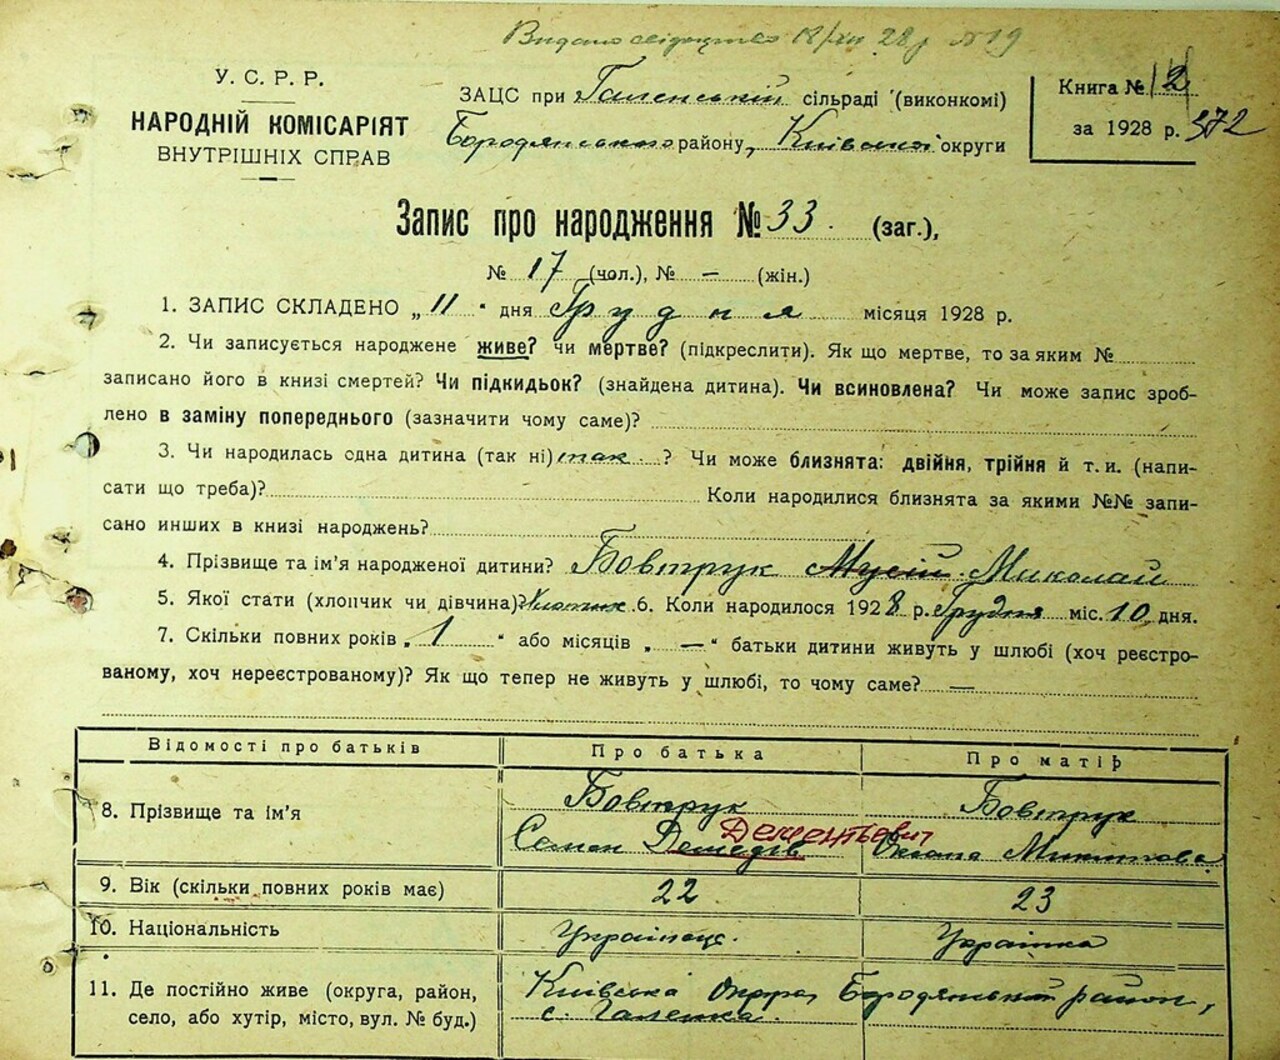 Видано свідоцтво 18/XII 28 р №19
У. С. Р. Р.
НАРОДНІЙ КОМІСАРІЯТ
ВНУТРІШНІХ СПРАВ
ЗАЦС при Галенській сільраді (виконкомі)
Бородянського району, Київської округи
Книга № 2
за 1928 р. 372
Запис про народження № 33. (заг.),
№ 17 (чол.), № — (жін.)
1. ЗАПИС СКЛАДЕНО „11“ дня Грудня місяця 1928 р.
2. Чи записується народжене живе? чи мертве? (підкреслити). Як що мертве, то за яким №
записано його в книзі смертей? Чи підкидьок? (знайдена дитина). Чи всиновлена? Чи може запис зроб-
лено в заміну попереднього (зазначити чому саме)?
3. Чи народилась одна дитина (так ні) так ? Чи може близнята: двійня, трійня й т. и. (напи-
сати що треба)? Коли народилися близнята за якими №№ запи-
сано инших в книзі народжень?
4. Прізвище та ім'я народженої дитини? Бовтрук Мусій Миколай
5. Якої стати (хлопчик чи дівчина)? Хлопчик 6. Коли народилося 1928 р. Грудня міс. 10 дня.
7. Скільки повних років „ 1 “ або місяців „ — “ батьки дитини живуть у шлюбі (хоч реєстро-
ваному, хоч нереєстрованому)? Як що тепер не живуть у шлюбі, то чому саме? —
Відомості про батьків Про батька Про матір
8. Прізвище та ім'я Бовтрук Бовтрук
Дементьевич
Семен Демедів Оксана Микитова
9. Вік (скільки повних років має) 22 23
10. Національність Українець. Українка
11. Де постійно живе (округа, район, Київська округа, Бородянський район,
село, або хутір, місто, вул. № буд.) с. Галенка.